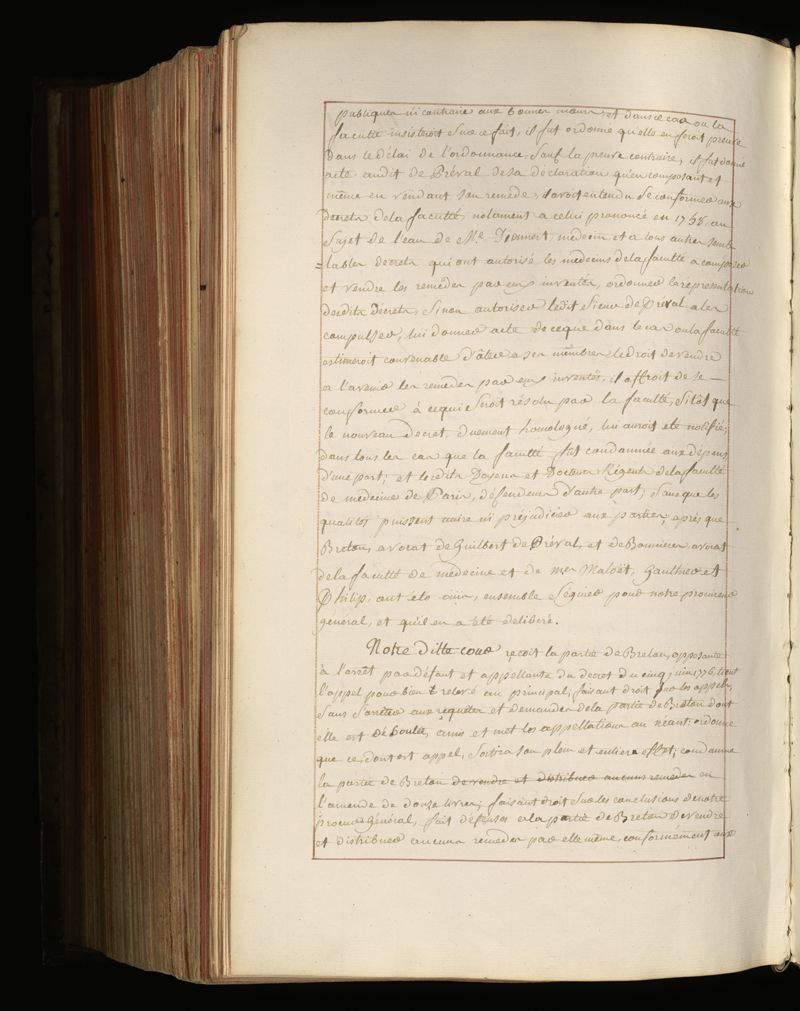 publiques ni contraire aux bonnes mœurs, et dans ce cas ou la
faculté insisteroit sur ce fait, il fut ordonné qu'elle en feroit preuve
dans le délai de l'ordonnance, sauf la preuve contraire, il fut donné
acte audit de Préval de sa déclaration qu'en composant et
même en vendant son remede, il avoit entendu se conformer aux
Decrets de la faculté, notament a celui prononcé en 1758. au
Sujet de l'eau de Me. Dionnert médecin et a tous autres semb
=lables decrets qui ont autorisé les médecins de la faculté a composer
et vendre les remèdes par eux inventés, ordonner la représentation
desdits Décrets, Sinon autoriser ledit Sieur de Préval a les
compulser, lui donner acte de ceque dans le cas ou la faculté
estimeroit convenable d'ôter a ses membres le droit de vendre
a l'avenir les remedes par eux inventés, il offroit de se —
conformer à ce qui seroit résolu par la faculté, Sitôt que
le nouveau Decret, duement homologué, lui auroit été notifié;
dans tous les cas que la faculté fut condamnée aux dépens
d'une part; et lesdits Doyen et Docteurs Régents de la faculté
de médecine de Paris, défendeurs d'autre part; Sans que les
qualités puissent nuire ni préjudicier aux parties; après que
Breton, avocat de Guilbert de Préval, et de Bonnieres avocat
de la faculté de médecine et de mes Maloët, Gauthier et
Philip, ont été ouis, ensemble Séguier pour notre procureur
général, et qu'il en a été déliberé.
Notre ditte cour reçoit la partie de Breton, opposante
à l'arrêt par défaut et appellante du decret du cinq juin 1776, tient
l'appel pour bien relevé au principal; faisant droit sur les appels,
Sans s'arrêter aux requêtes et demandes de la partie de Breton dont
elle est déboutée, a mis et met les appellations au néant: ordonne
que ce, dont est appel, Sortira son plein et entier effet; condamne
la partie de Breton de vendre et distribuer aucuns remedes en
l'amende de douze livres; faisant droit sur les conclusions de notre
procureur Général, fait défenses a la partie de Breton de vendre
et distribuer aucuns remedes par elle même, conformément aux